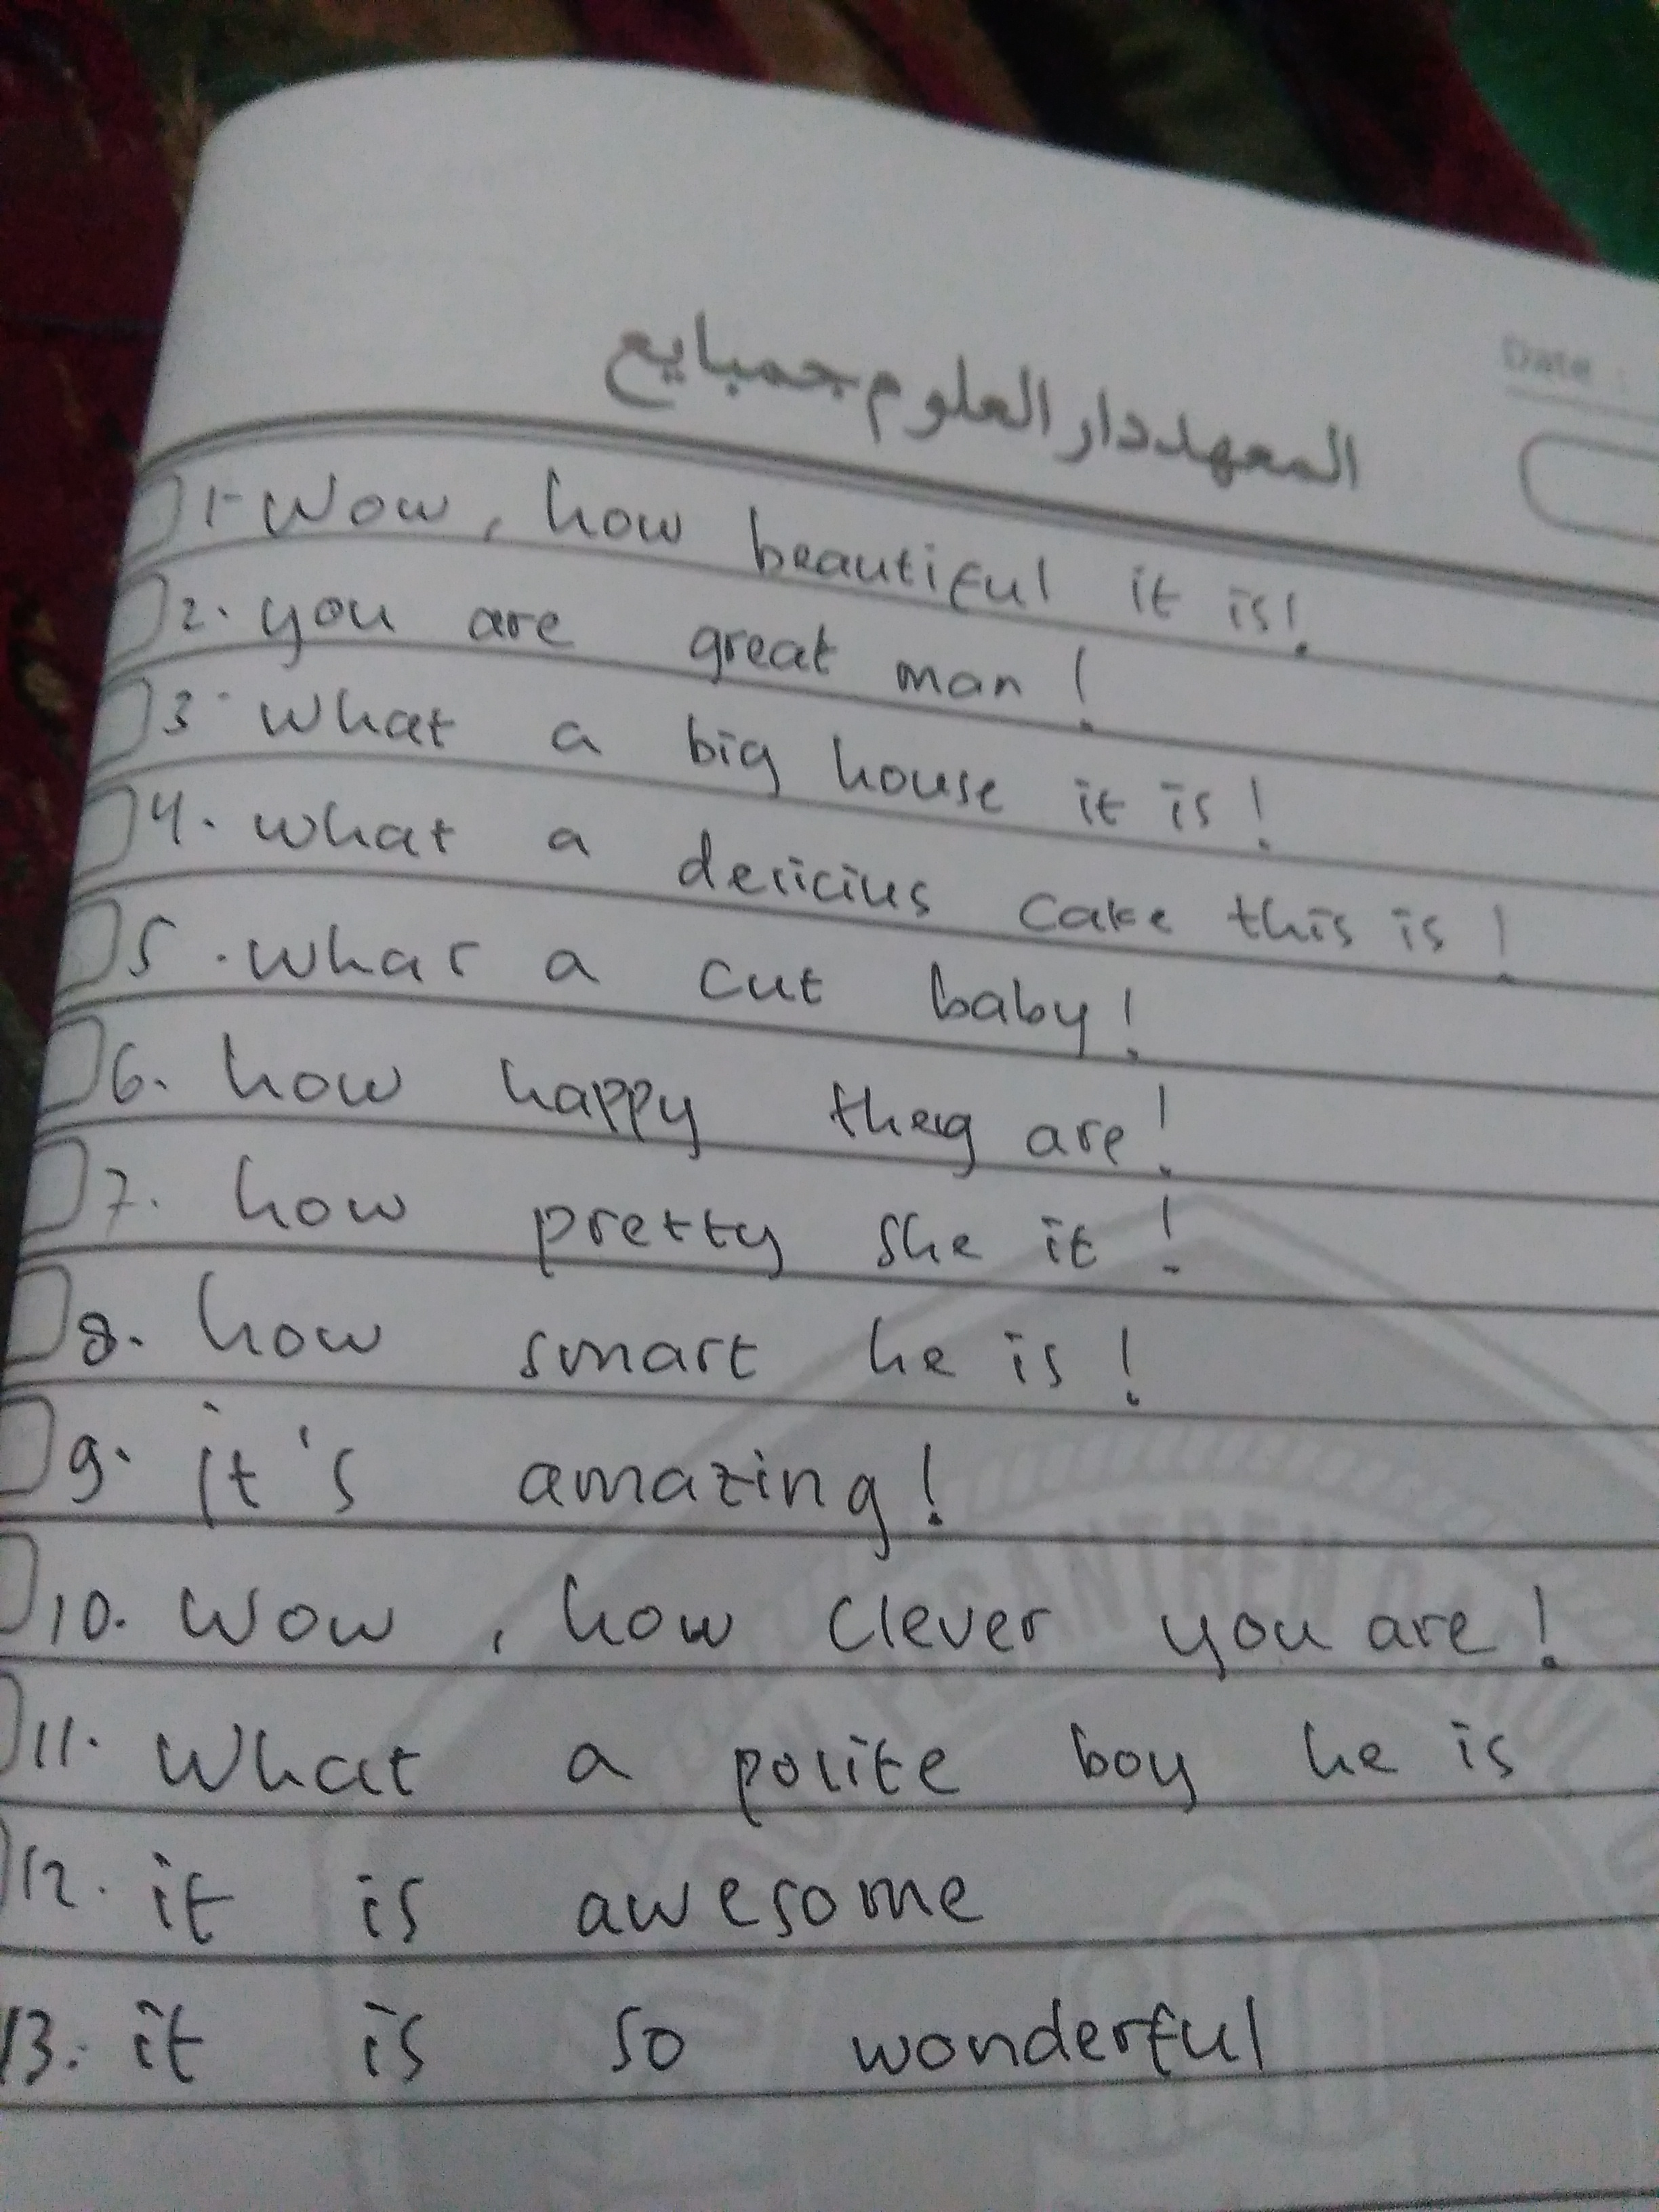 المعهد دار العلوم جمبايع
Date :
1- Wow, how beautiful it is!
2. you are great man!
3. what a big house it is!
4. what a delicius cake this is!
5. what a cut baby!
6. how happy they are!
7. how pretty she it!
8. how smart he is!
9. it's amazing!
10. Wow, how clever you are!
11. What a polite boy he is
12. it is awesome
13. it is so wonderful